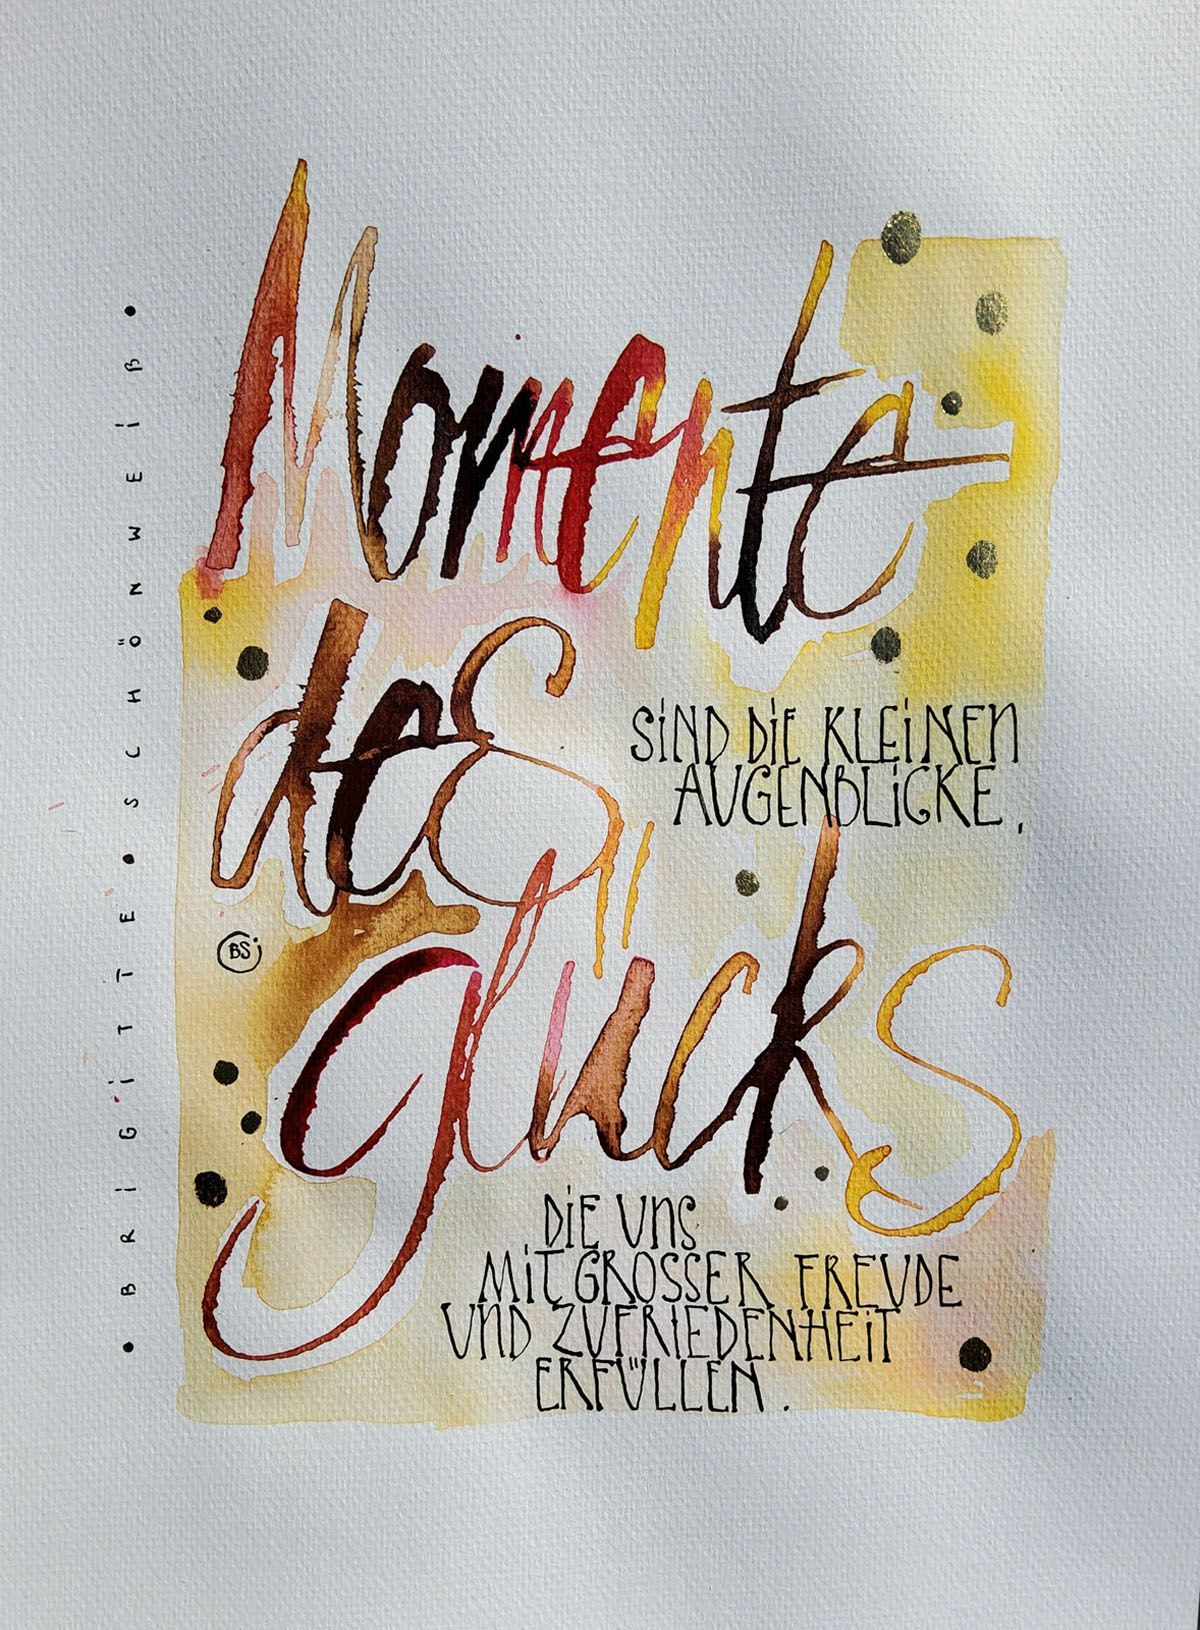 Momente
des
SiND DiE KLEiNEN
AUGENBLiCKE,
glücks
DiE UNS
MiT GROSSER FREUDE
UND ZUFRIEDENHEiT
ERFÜLLEN.
BS
• BRIGiTTE • SCHÖNWEiB •